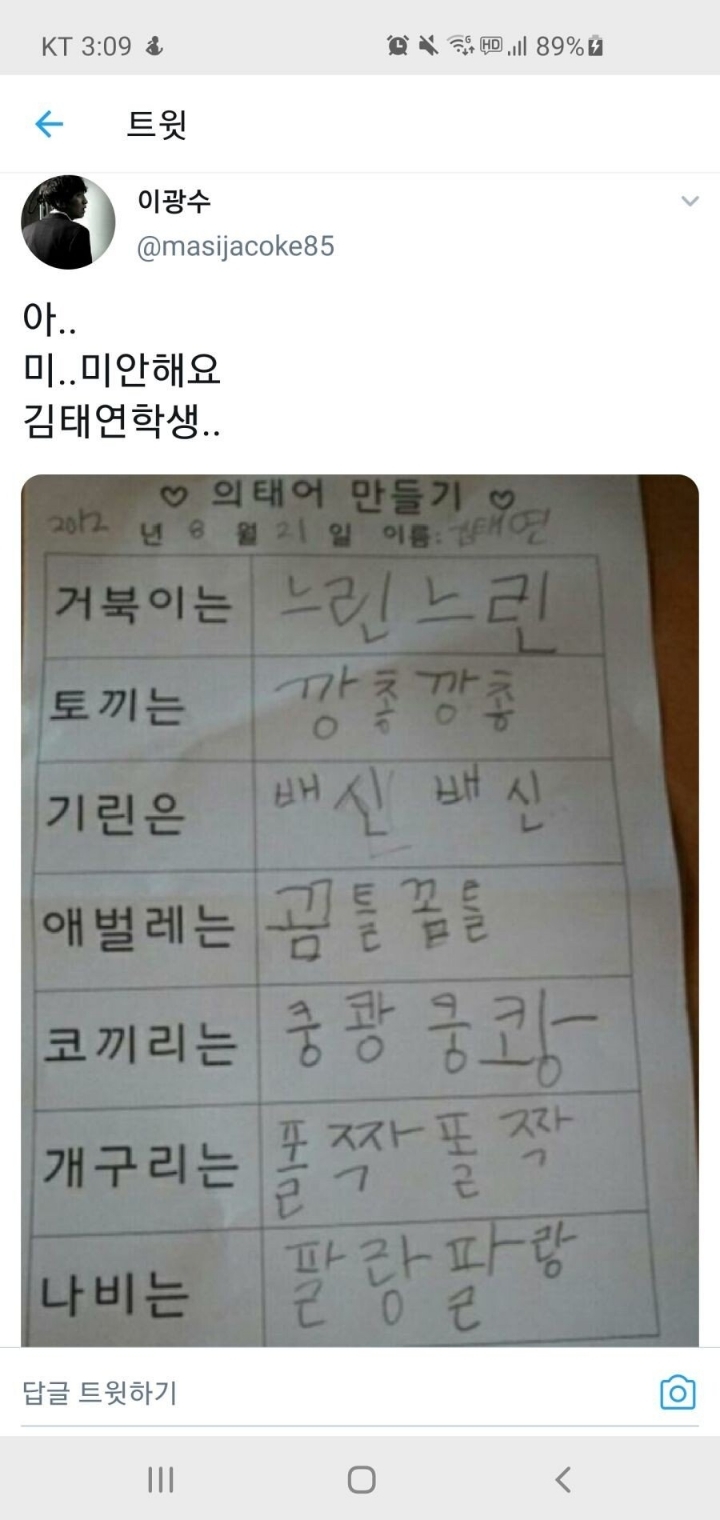 KT 3:09 HD 89%
트윗
이광수
@masijacoke85
아..
미..미안해요
김태연학생..
♡ 의태어 만들기 ♡
2012 년 8 월 21 일 이름: 김태연
거북이는 느린느린
토끼는 깡총깡총
기린은 배신 배신
애벌레는 꿈틀꿈틀
코끼리는 쿵쾅쿵쾅
개구리는 폴짝폴짝
나비는 팔랑팔랑
답글 트윗하기